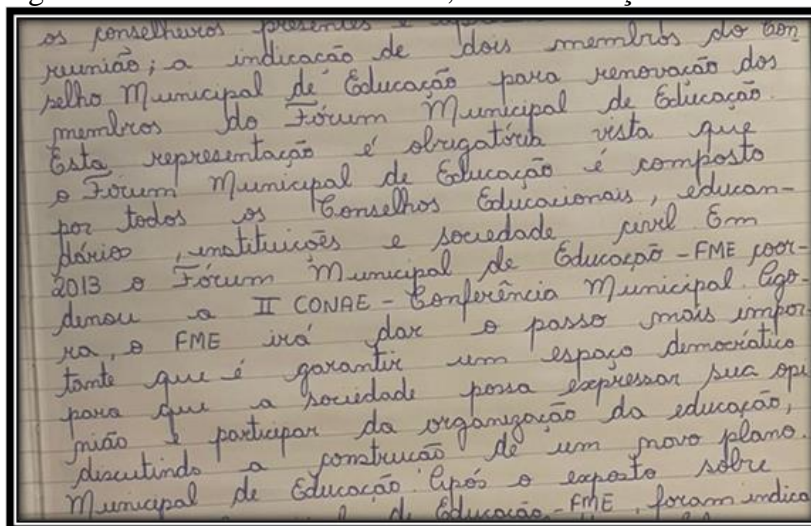 os conselheiros presentes e
reunião; a indicação de dois membros do Con
selho Municipal de Educação para renovação dos
membros do Fórum Municipal de Educação.
Esta representação é obrigatória vista que
o Fórum Municipal de Educação é composto
por todos os Conselhos Educacionais, educan-
dários, instituições e sociedade civil. Em
2013 o Fórum Municipal de Educação - FME coor-
denou a II CONAE - Conferência Municipal. Ago-
ra, o FME irá dar o passo mais impor-
tante que é garantir um espaço democrático
para que a sociedade possa expressar sua opi
nião e participar da organização da educação,
discutindo a construção de um novo plano.
Municipal de Educação. Após o exposto sobre
de Educação - FME, foram indica